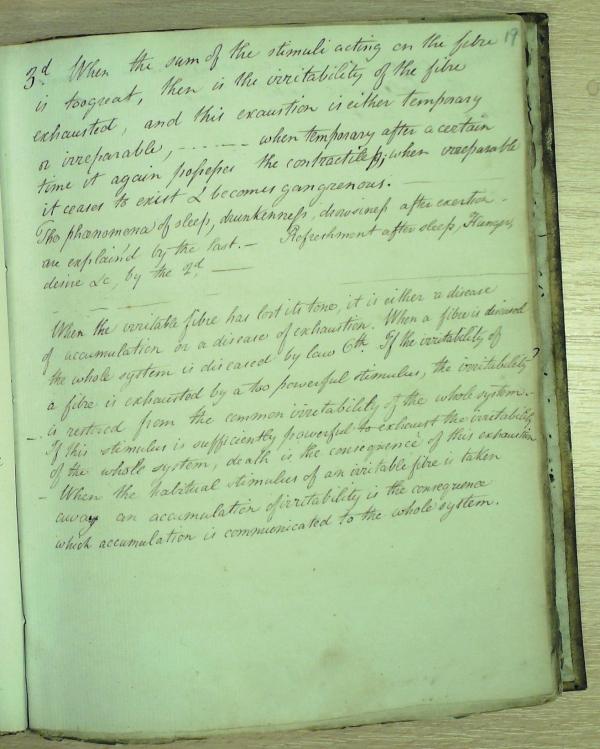 19
3d When the sum of the stimuli acting on the fibre
is too great, then is the irritability of the fibre
exhausted, and this exaustion is either temporary
or irreparable, - - - - - - when temporary after a certain
time it again possesses the contractile p; when irreparable
it ceases to exist & becomes gangrenous. —
The phœnomena of sleep, drunkenness, drowsiness after exertion -
are explain'd by the last. — Refreshment after sleep, Hunger,
desire &c, by the 2d, —
When the irritable fibre has lost its tone, it is either a disease
of accumulation or a disease of exhaustion. When a fibre is diseased
the whole system is diseased by law 6th. If the irritability of
a fibre is exhausted by a too powerful stimulus, the irritability
is restored from the common irritability of the whole system. -
If this stimulus is sufficiently powerful to exhaust the irritability
of the whole system, death is the consequence of this exhaustion
— When the habitual stimulus of an irritable fibre is taken
away an accumulation of irritability is the consequence
which accumulation is communicated to the whole system.